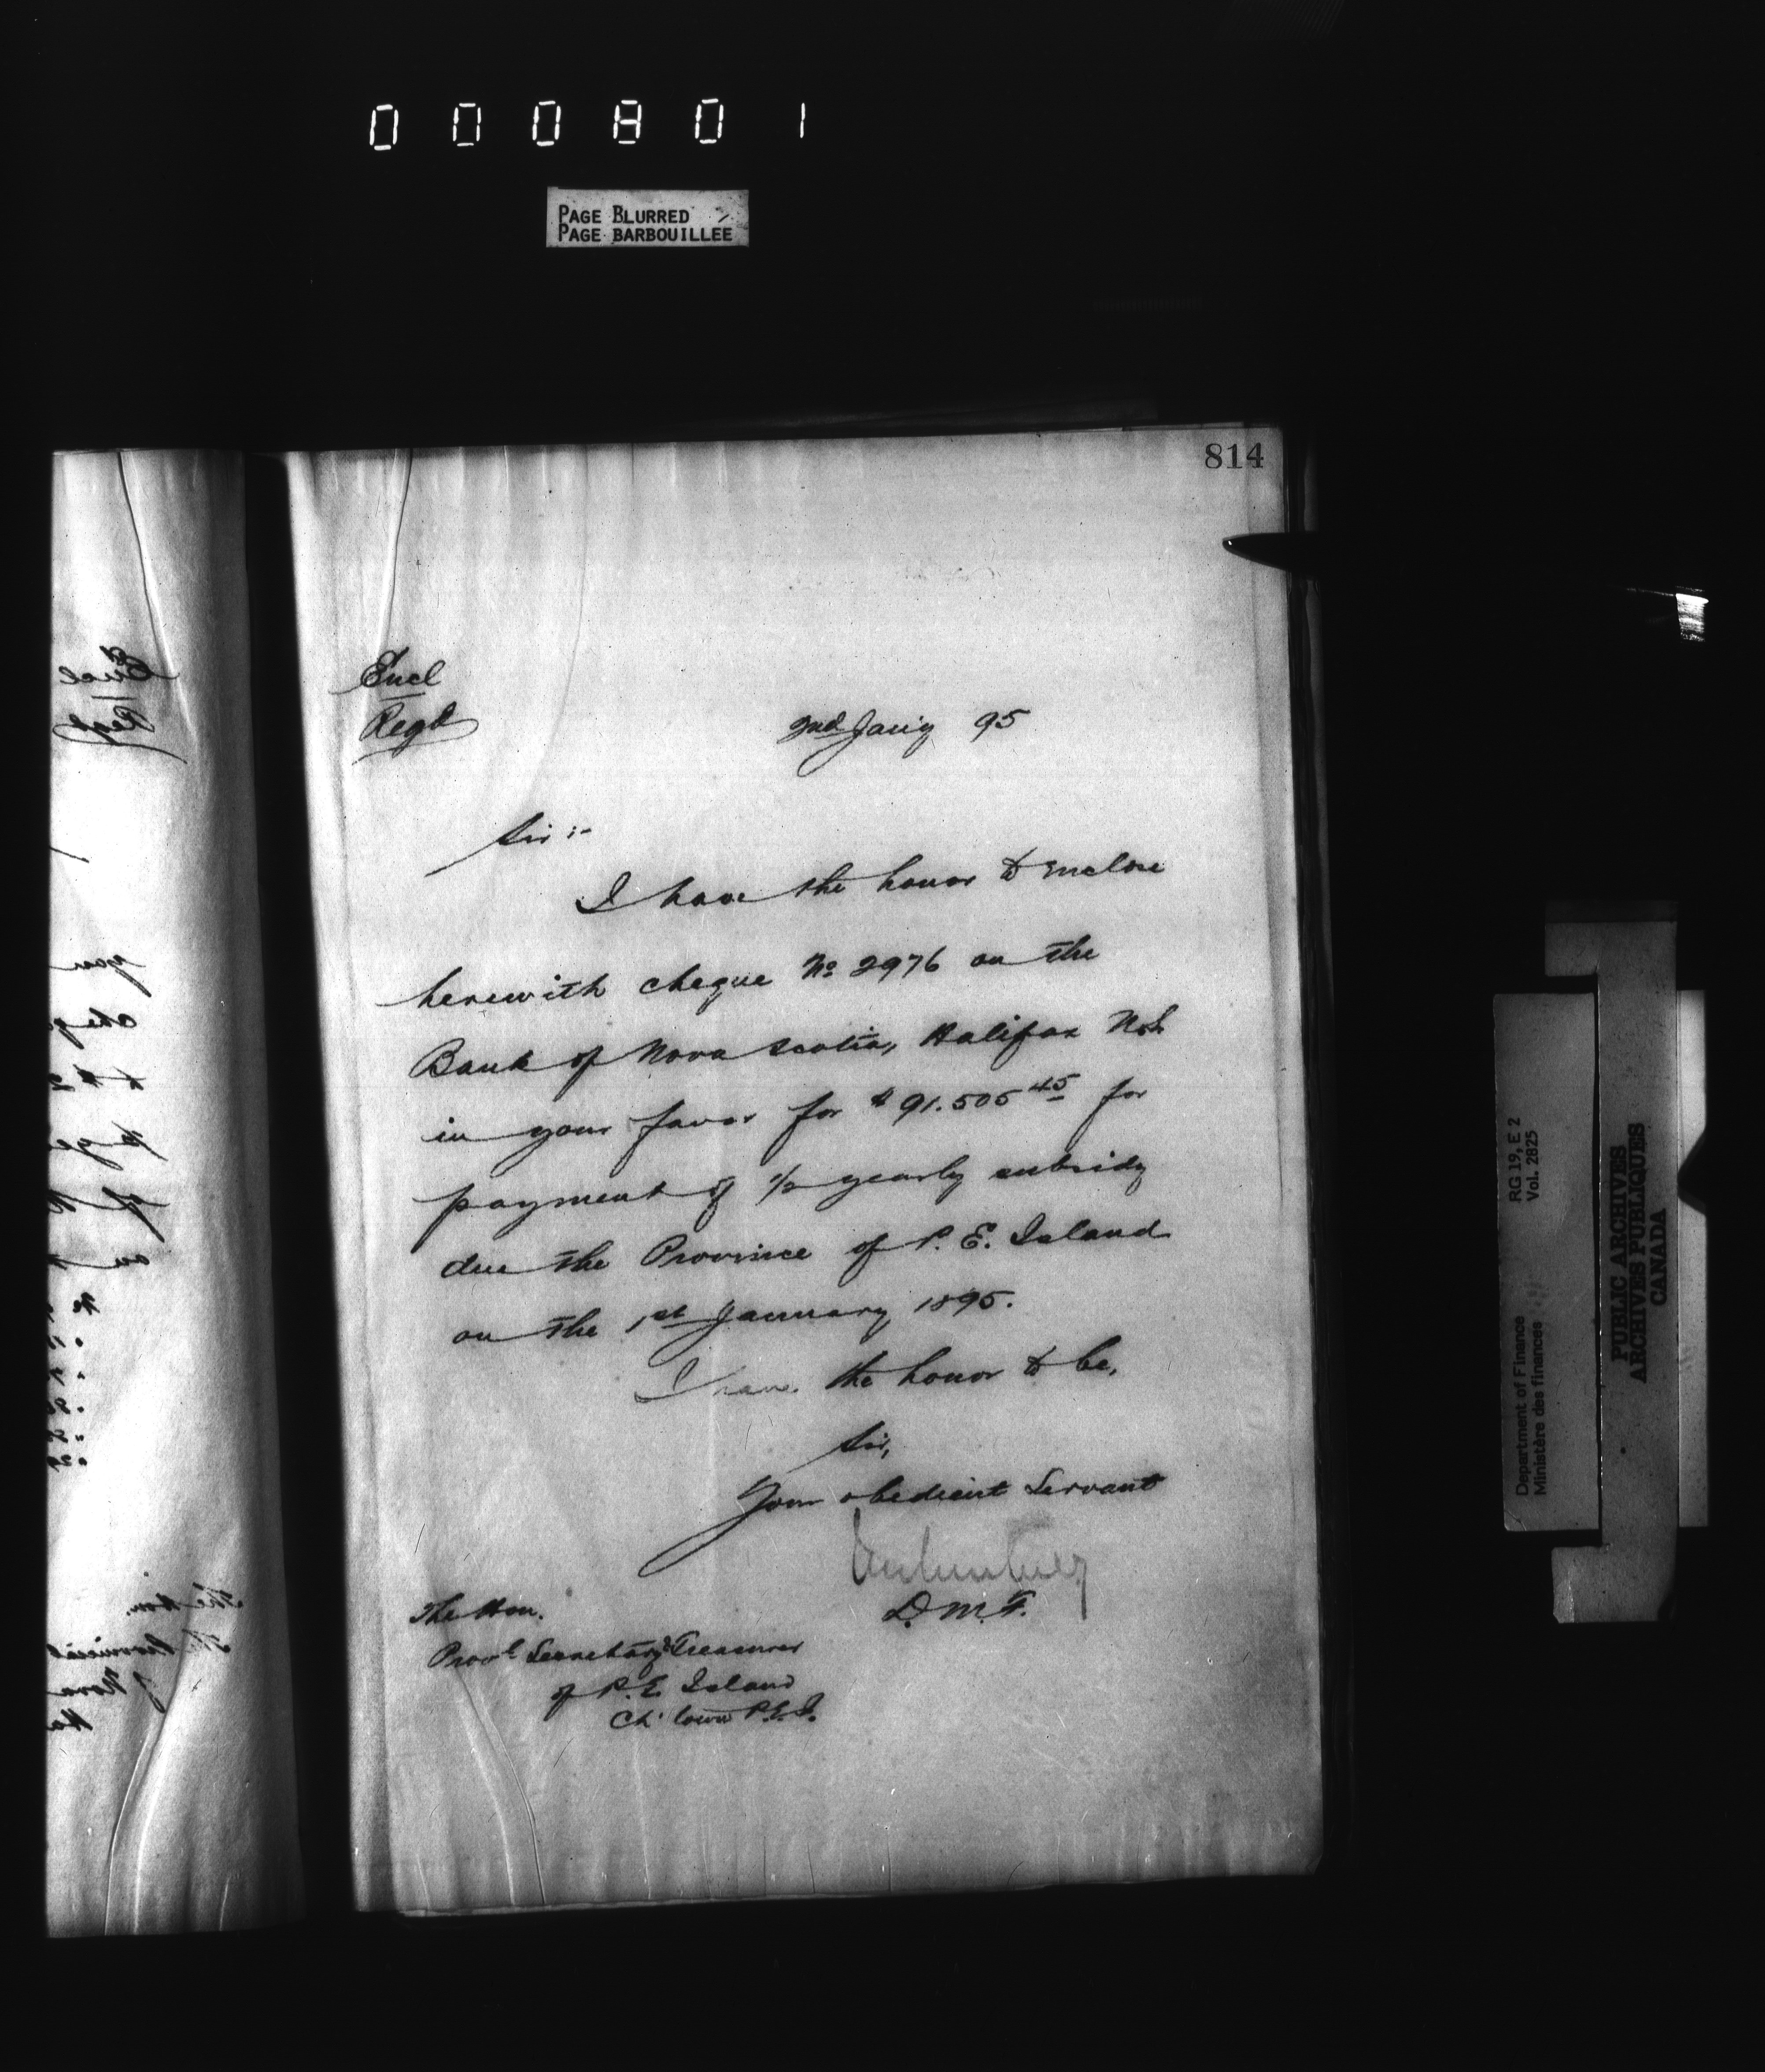 000801
PAGE BLURRED
PAGE BARBOUILLÉE
814
Encl
Regd
2nd Jan'y 95
Sir :-
I have the honor to enclose
herewith cheque No 2976 on the
Bank of Nova Scotia, Halifax N.S.
in your favor for $91.505 45 for
payment of 1/2 yearly subsidy
due the Province of P. E. Island
on the 1st January 1895.
I have the honor to be,
Sir,
Your obedient Servant
D. M. F.
The Hon.
Provl Secretary & Treasurer
of P. E. Island
Ch'town P.E.I.
Encl
Regd
your
cheq
The Hon.
The Provincial
of Nova
Ha
RG 19, E 2
Vol. 2825
Department of Finance
Ministère des finances
PUBLIC ARCHIVES
ARCHIVES PUBLIQUES
CANADA